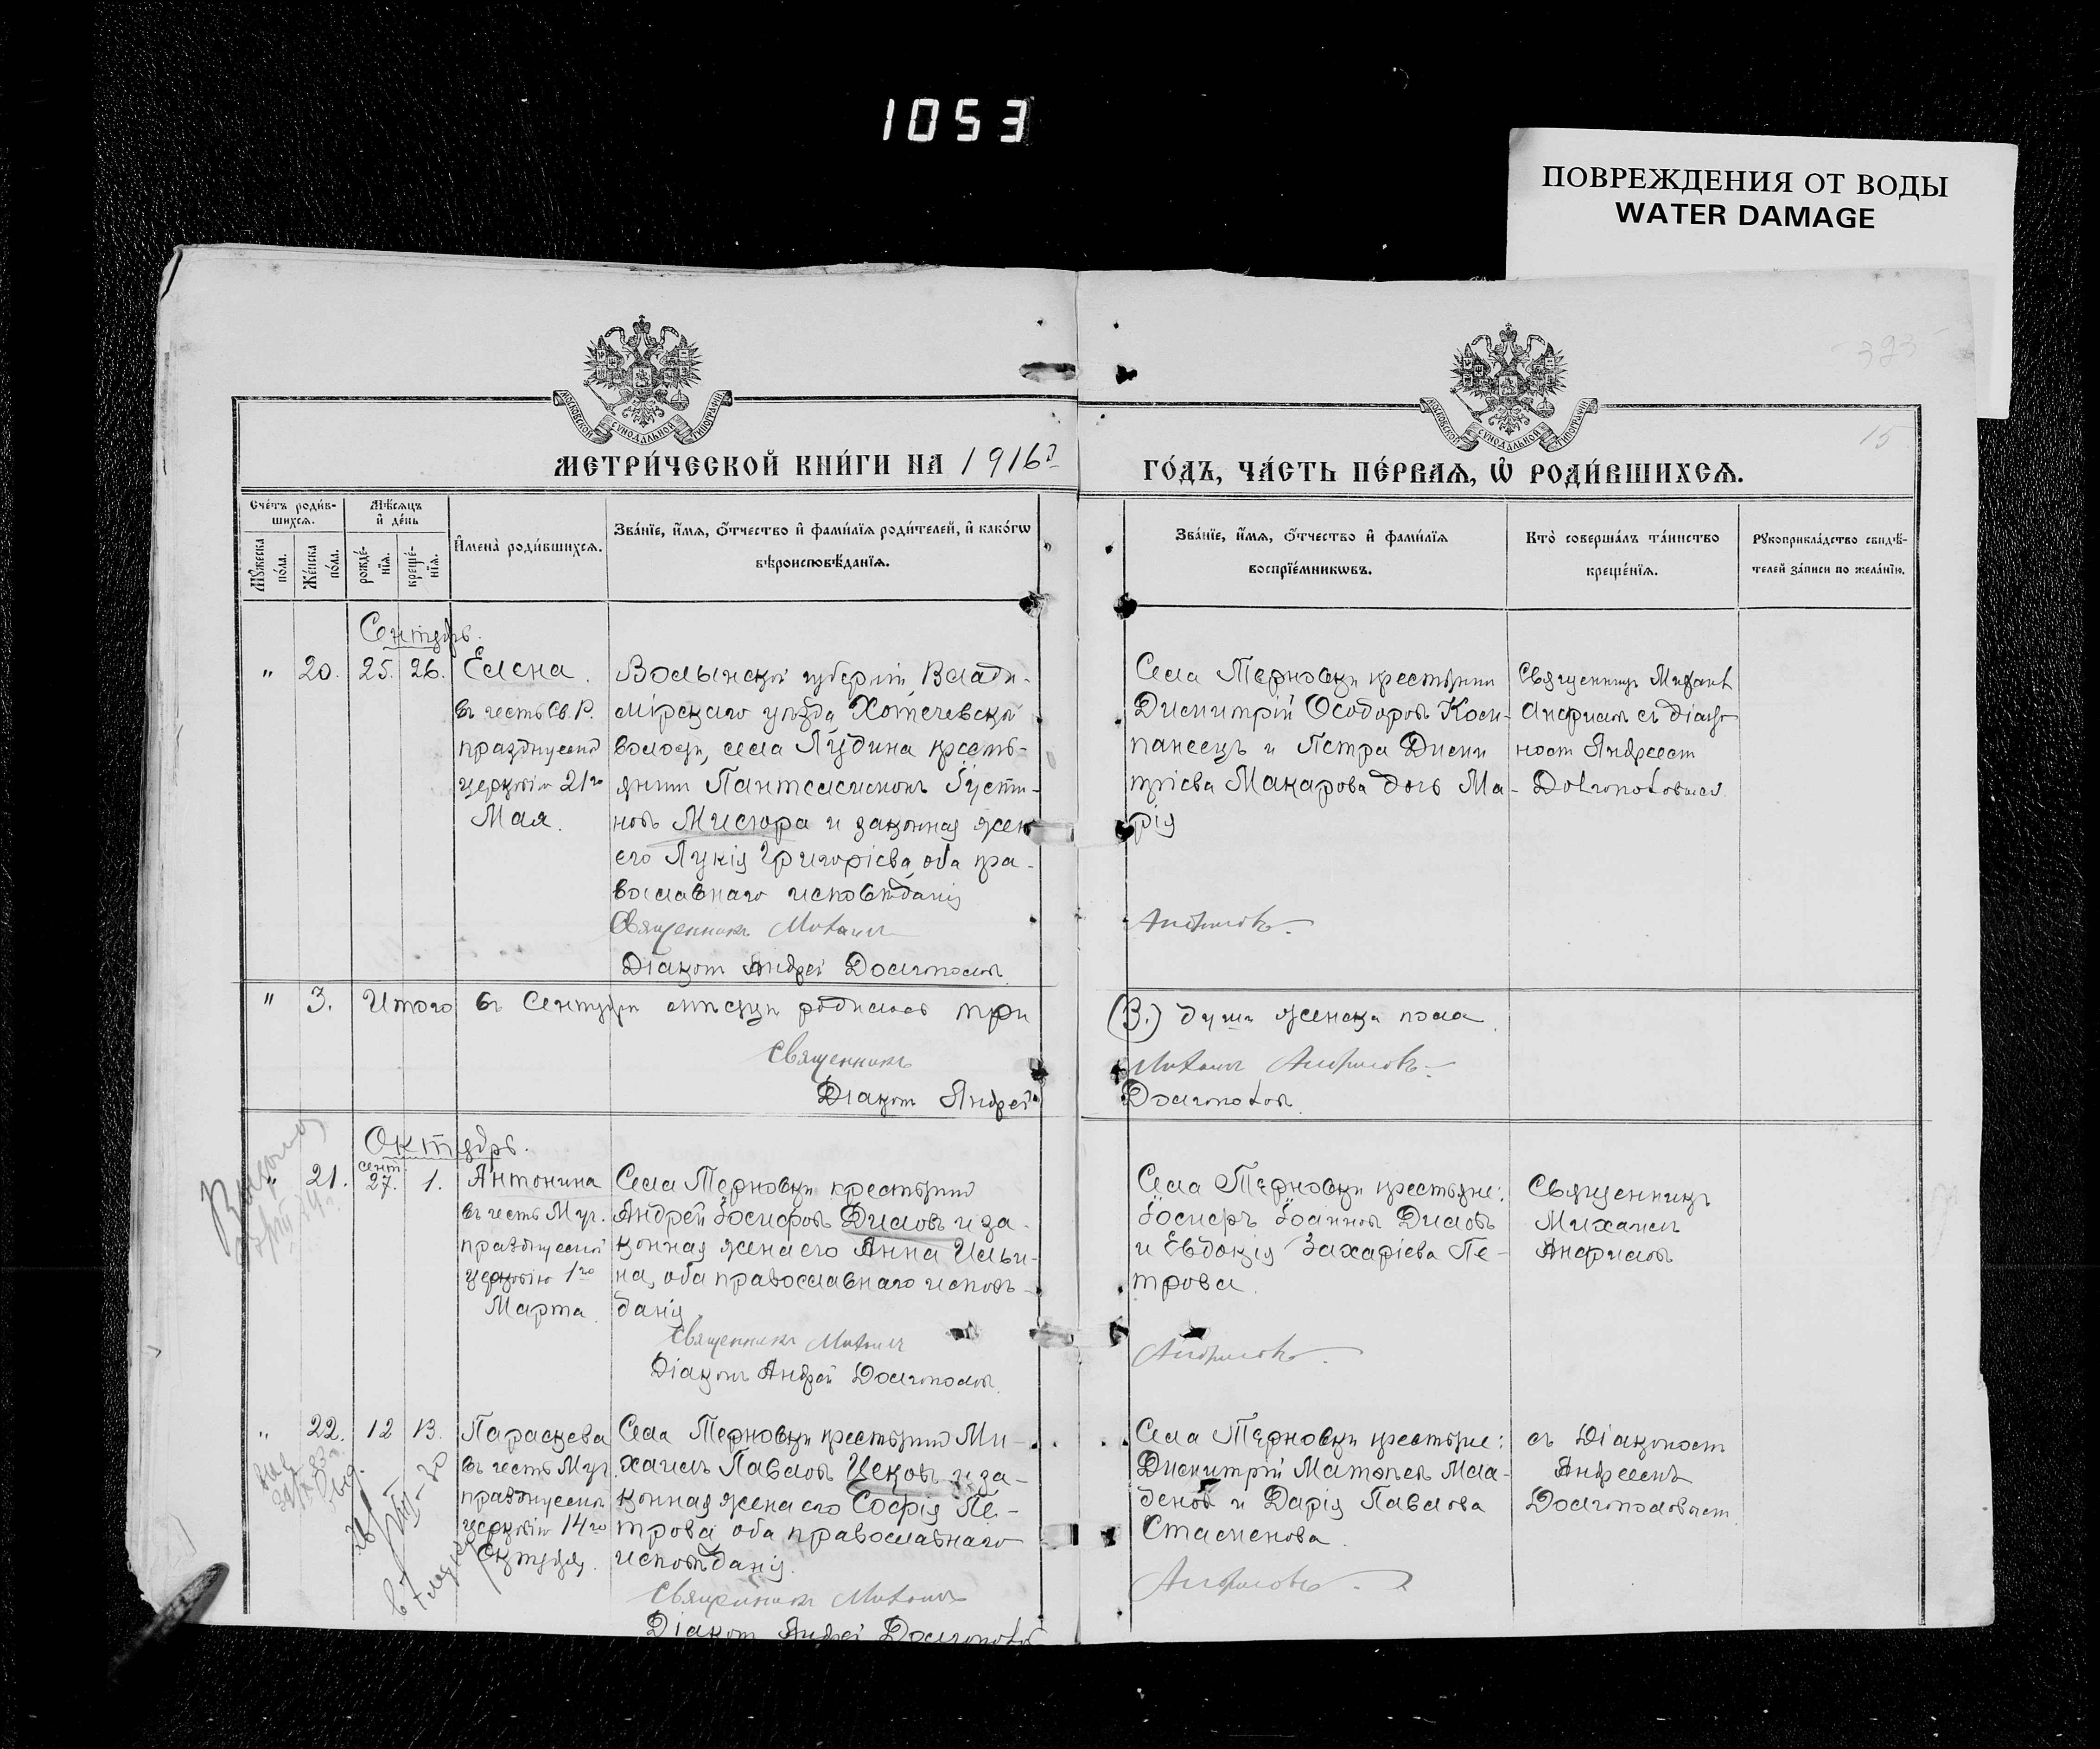 1053
ПОВРЕЖДЕНИЯ ОТ ВОДЫ
WATER DAMAGE
393
15
МОСКОВСКОЙ СѴНОДАЛЬНОЙ ТИПОГРАФІИ
МОСКОВСКОЙ СѴНОДАЛЬНОЙ ТИПОГРАФІИ
МЕТРИ́ЧЕСКОЙ КНИ́ГИ НА 1916й
ГО́ДЪ, ЧА́СТЬ ПЕ́РВАѦ, Ѡ҆ РОДИ́ВШИХСѦ.
Сче́тъ роди́в-
шихсѧ.
Мꙋ́жеска по́ла.
Же́нска по́ла.
Мѣ́сѧцъ
и҆ де́нь
рожде́-
нїѧ.
креще́-
нїѧ.
И҆мена̀ роди́вшихсѧ.
Зва́нїе, и҆́мѧ, ѻ҆́тчество и҆ фами́лїѧ роди́телей, и҆ како́гѡ
вѣроисповѣ́данїѧ.
Зва́нїе, и҆́мѧ, ѻ҆́тчество и҆ фами́лїѧ
воспрїе́мникѡвъ.
Кто̀ соверша́лъ та́инство
креще́нїѧ.
Рꙋкоприкла́дство свидѣ́-
телей за́писи по жела́нїю.
Сентябрь.
" 20. 25. 26. Елена.
въ честь Св. Р.
празднуемой
церковію 21го
Мая.
Волынской губерніи Влади-
мірскаго уѣзда Хотечевской
волости, села Лудина кресть-
янинъ Пантелеимонъ Іусти-
новъ Мисюра и законная жена
его Лукія Григорієва, оба пра-
вославнаго исповѣданія
Священникъ Михаилъ
Діаконъ Андрей Долгополов
Села Терновки крестьянинъ
Димитрій Ѳеодоровъ Коси-
панецъ и Петра Дими
тріева Макарова дочь Ма-
рія
Анфиловъ.
Священникъ Михаилъ
Анфиловъ съ діако
номъ Андреемъ
Долгополовымъ
" 3. Итого въ Сентябрѣ мѣсяцѣ родилось три
(3.) души женска пола.
Священникъ
Михаилъ Анфиловъ.
Діаконъ Андрей
Долгополовъ.
Октябрь.
" 21. Сент. 27. 1. Антонина
въ честь Муч.
празднуемой
церковію 1го
Марта.
Села Терновки крестьянинъ
Андрей Іосифовъ Диловъ и за-
конная жена его Анна Ильи-
на, оба православнаго исповѣ-
данія
Священникъ Михаилъ
Діаконъ Андрей Долгополов.
Села Терновки крестьяне:
Іосифъ Іоанновъ Диловъ
и Евдокія Захаріева Пе-
трова.
Анфиловъ.
Священникъ
Михаилъ
Анфиловъ
" 22. 12 13. Параскева
въ честь Муч.
празднуемой
церковію 14го
Октября.
Села Терновки крестьянинъ Ми-
хаилъ Павловъ Цековъ и за-
конная жена его Софія Пе-
трова, оба православнаго
исповѣданія.
Священникъ Михаилъ
Діаконъ Андрей Долгополов
Села Терновки крестьяне:
Димитрій Матѳеевъ Мла-
деновъ и Дарія Павлова
Стаменова.
Анфиловъ.
съ Діакономъ
Андреемъ
Долгополовымъ.